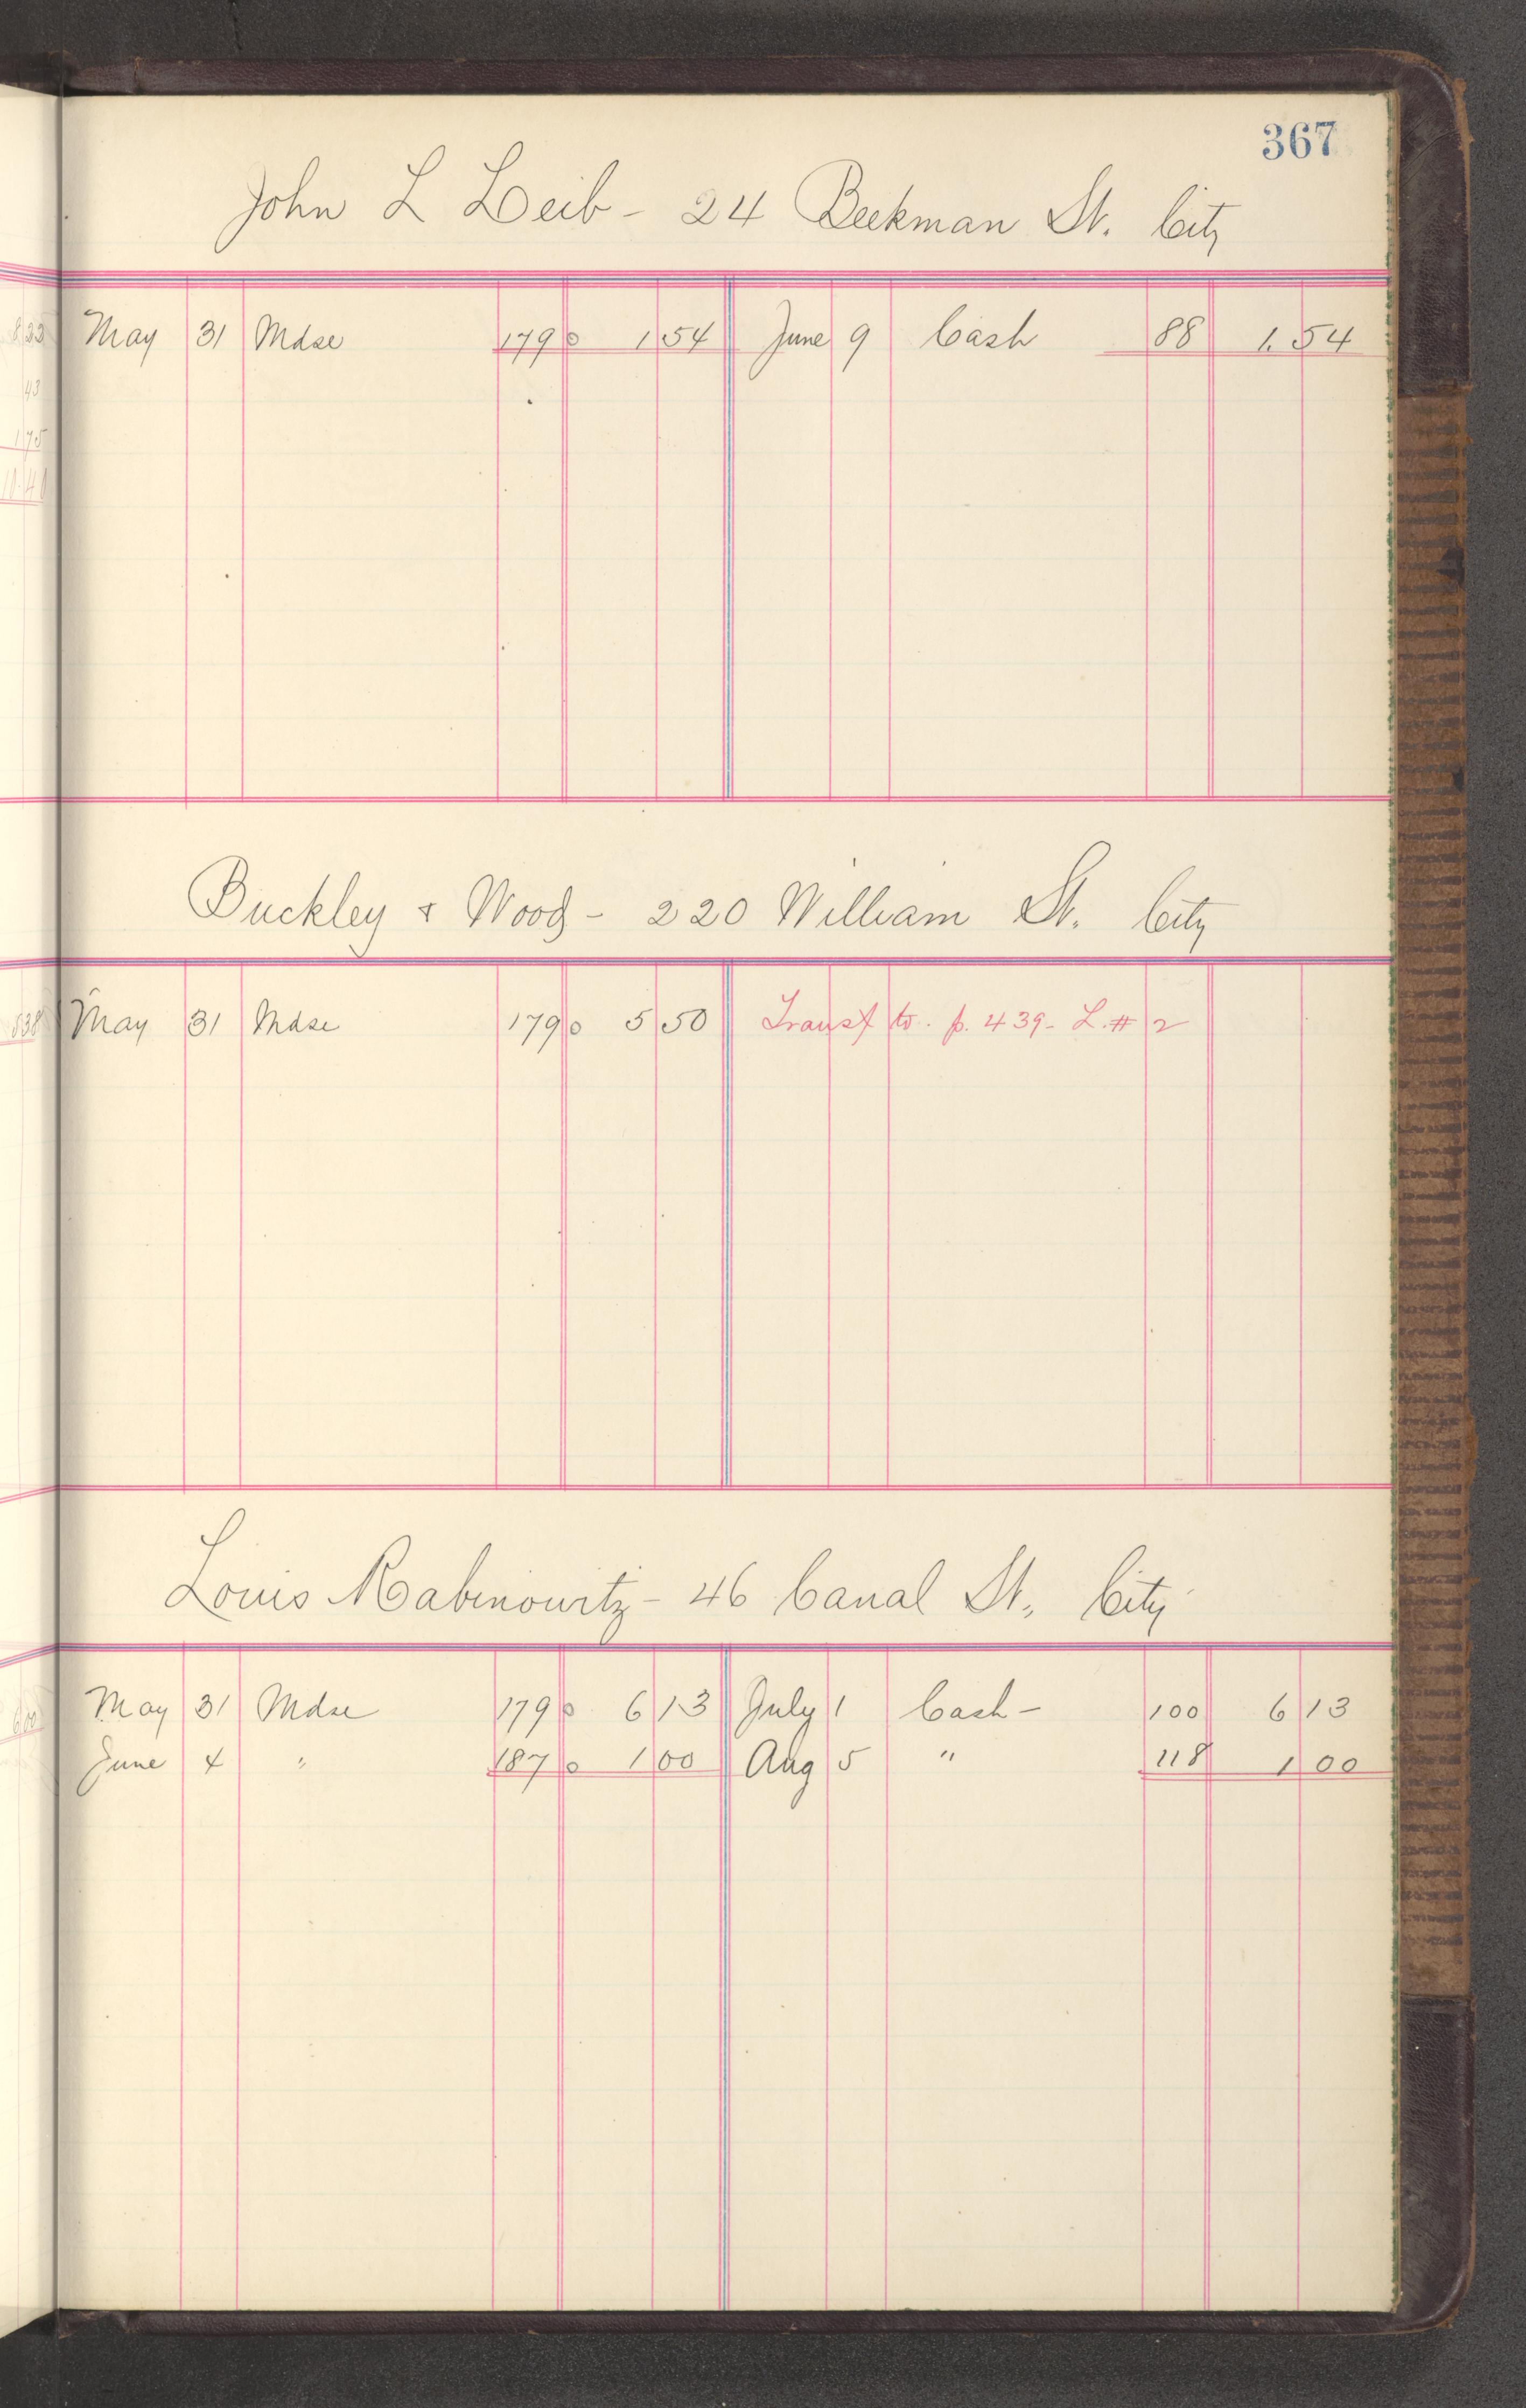 367
John L Leib - 24 Beekman St. City
May 31 Mdse 179 0 1 54 June 9 Cash 88 1. 54
Buckley & Wood - 220 William St. City
May 31 Mdse 179 0 5 50 Transf to. p. 439 - L. # 2
Louis Rabinowitz - 46 Canal St., City
May 31 Mdse 179 0 6 13 July 1 Cash - 100 6 13
June 4 " 187 0 1 00 Aug 5 " 118 1 00